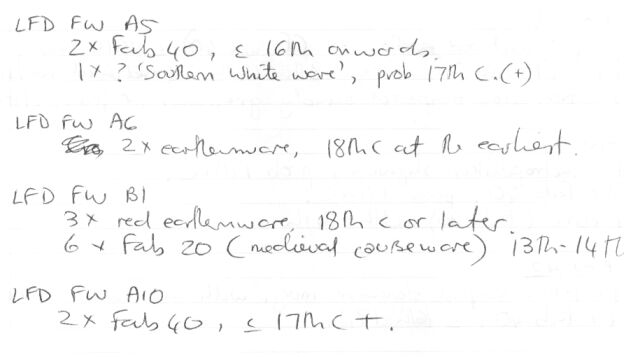 LFD FW A5
2 x Fab 40, ≤ 16th onwards.
1 x ? 'Southern White ware', prob 17th c. (+)
LFD FW A6
2 x earthenware, 18th c at the earliest.
LFD FW B1
3 x red earthenware, 18th c or later.
6 x Fab 20 (medieval courseware) 13th-14th
LFD FW A10
2 x Fab 40, ≤ 17th c +.